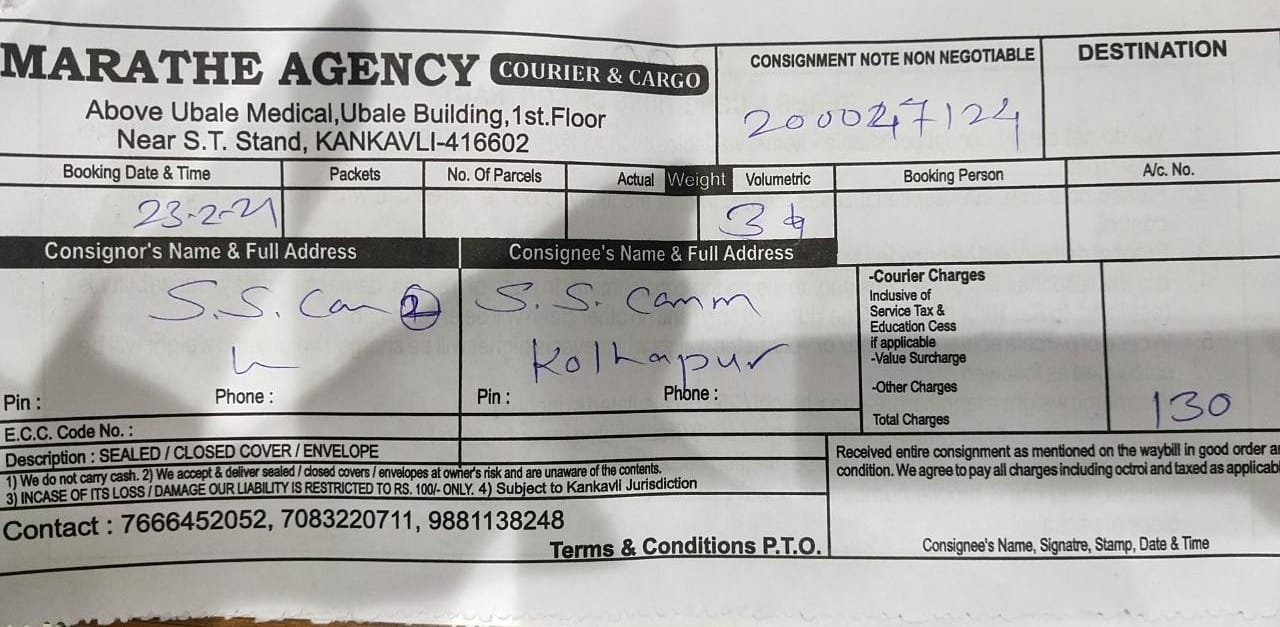 MARATHE AGENCY COURIER & CARGO
Above Ubale Medical,Ubale Building,1st.Floor
Near S.T. Stand, KANKAVLI-416602
CONSIGNMENT NOTE NON NEGOTIABLE
200047124
DESTINATION
Booking Date & Time
23-2-21
Packets
No. Of Parcels
Actual Weight Volumetric
3
Booking Person
A/c. No.
Consignor's Name & Full Address
S.S. Can
Pin :
Phone :
Consignee's Name & Full Address
S.S. Canm
Kolhapur
Pin :
Phone :
-Courier Charges
Inclusive of
Service Tax &
Education Cess
if applicable
-Value Surcharge
-Other Charges
Total Charges
130
E.C.C. Code No. :
Description : SEALED / CLOSED COVER / ENVELOPE
1) We do not carry cash. 2) We accept & deliver sealed / closed covers / envelopes at owner's risk and are unaware of the contents.
3) INCASE OF ITS LOSS / DAMAGE OUR LIABILITY IS RESTRICTED TO RS. 100/- ONLY. 4) Subject to Kankavli Jurisdiction
Contact : 7666452052, 7083220711, 9881138248
Terms & Conditions P.T.O.
Received entire consignment as mentioned on the waybill in good order
condition. We agree to pay all charges including octroi and taxed as applicab
Consignee's Name, Signatre, Stamp, Date & Time